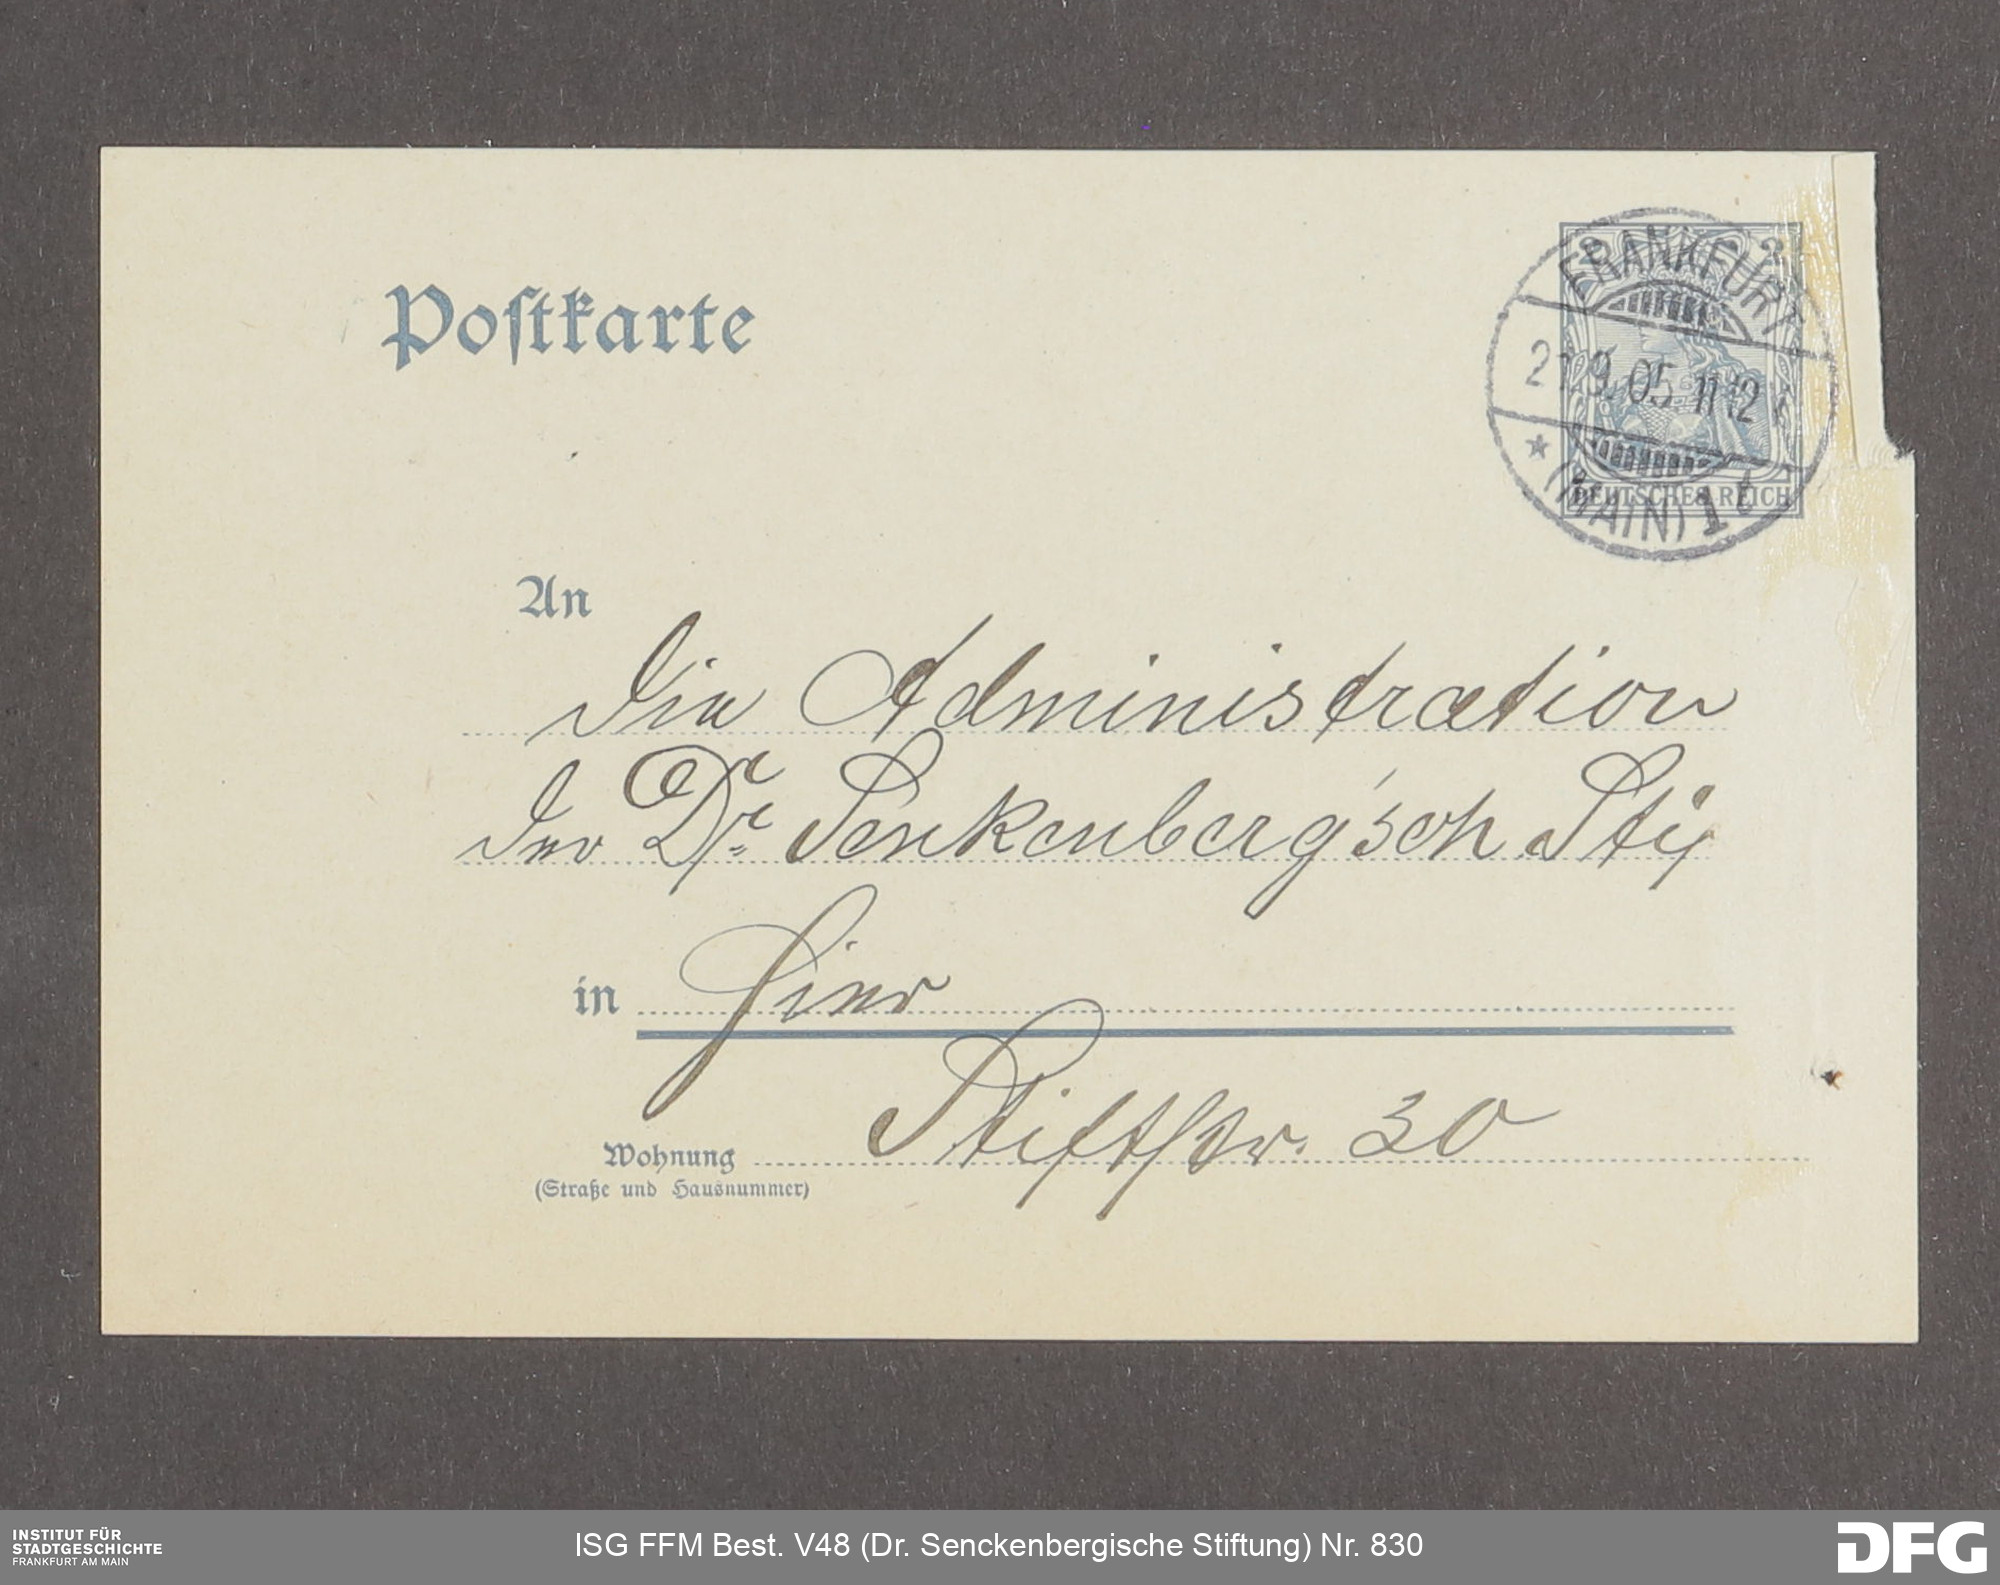 Postkarte
FRANKFURT
21.9.05 11-12
* (MAIN) 1
DEUTSCHES REICH
An
die Administration
der Dr. Senkenberg'sch. Stif
in Hier
Wohnung Stiftstr. 30
(Straße und Hausnummer)
INSTITUT FÜR
STADTGESCHICHTE
FRANKFURT AM MAIN
ISG FFM Best. V48 (Dr. Senckenbergische Stiftung) Nr. 830
DFG